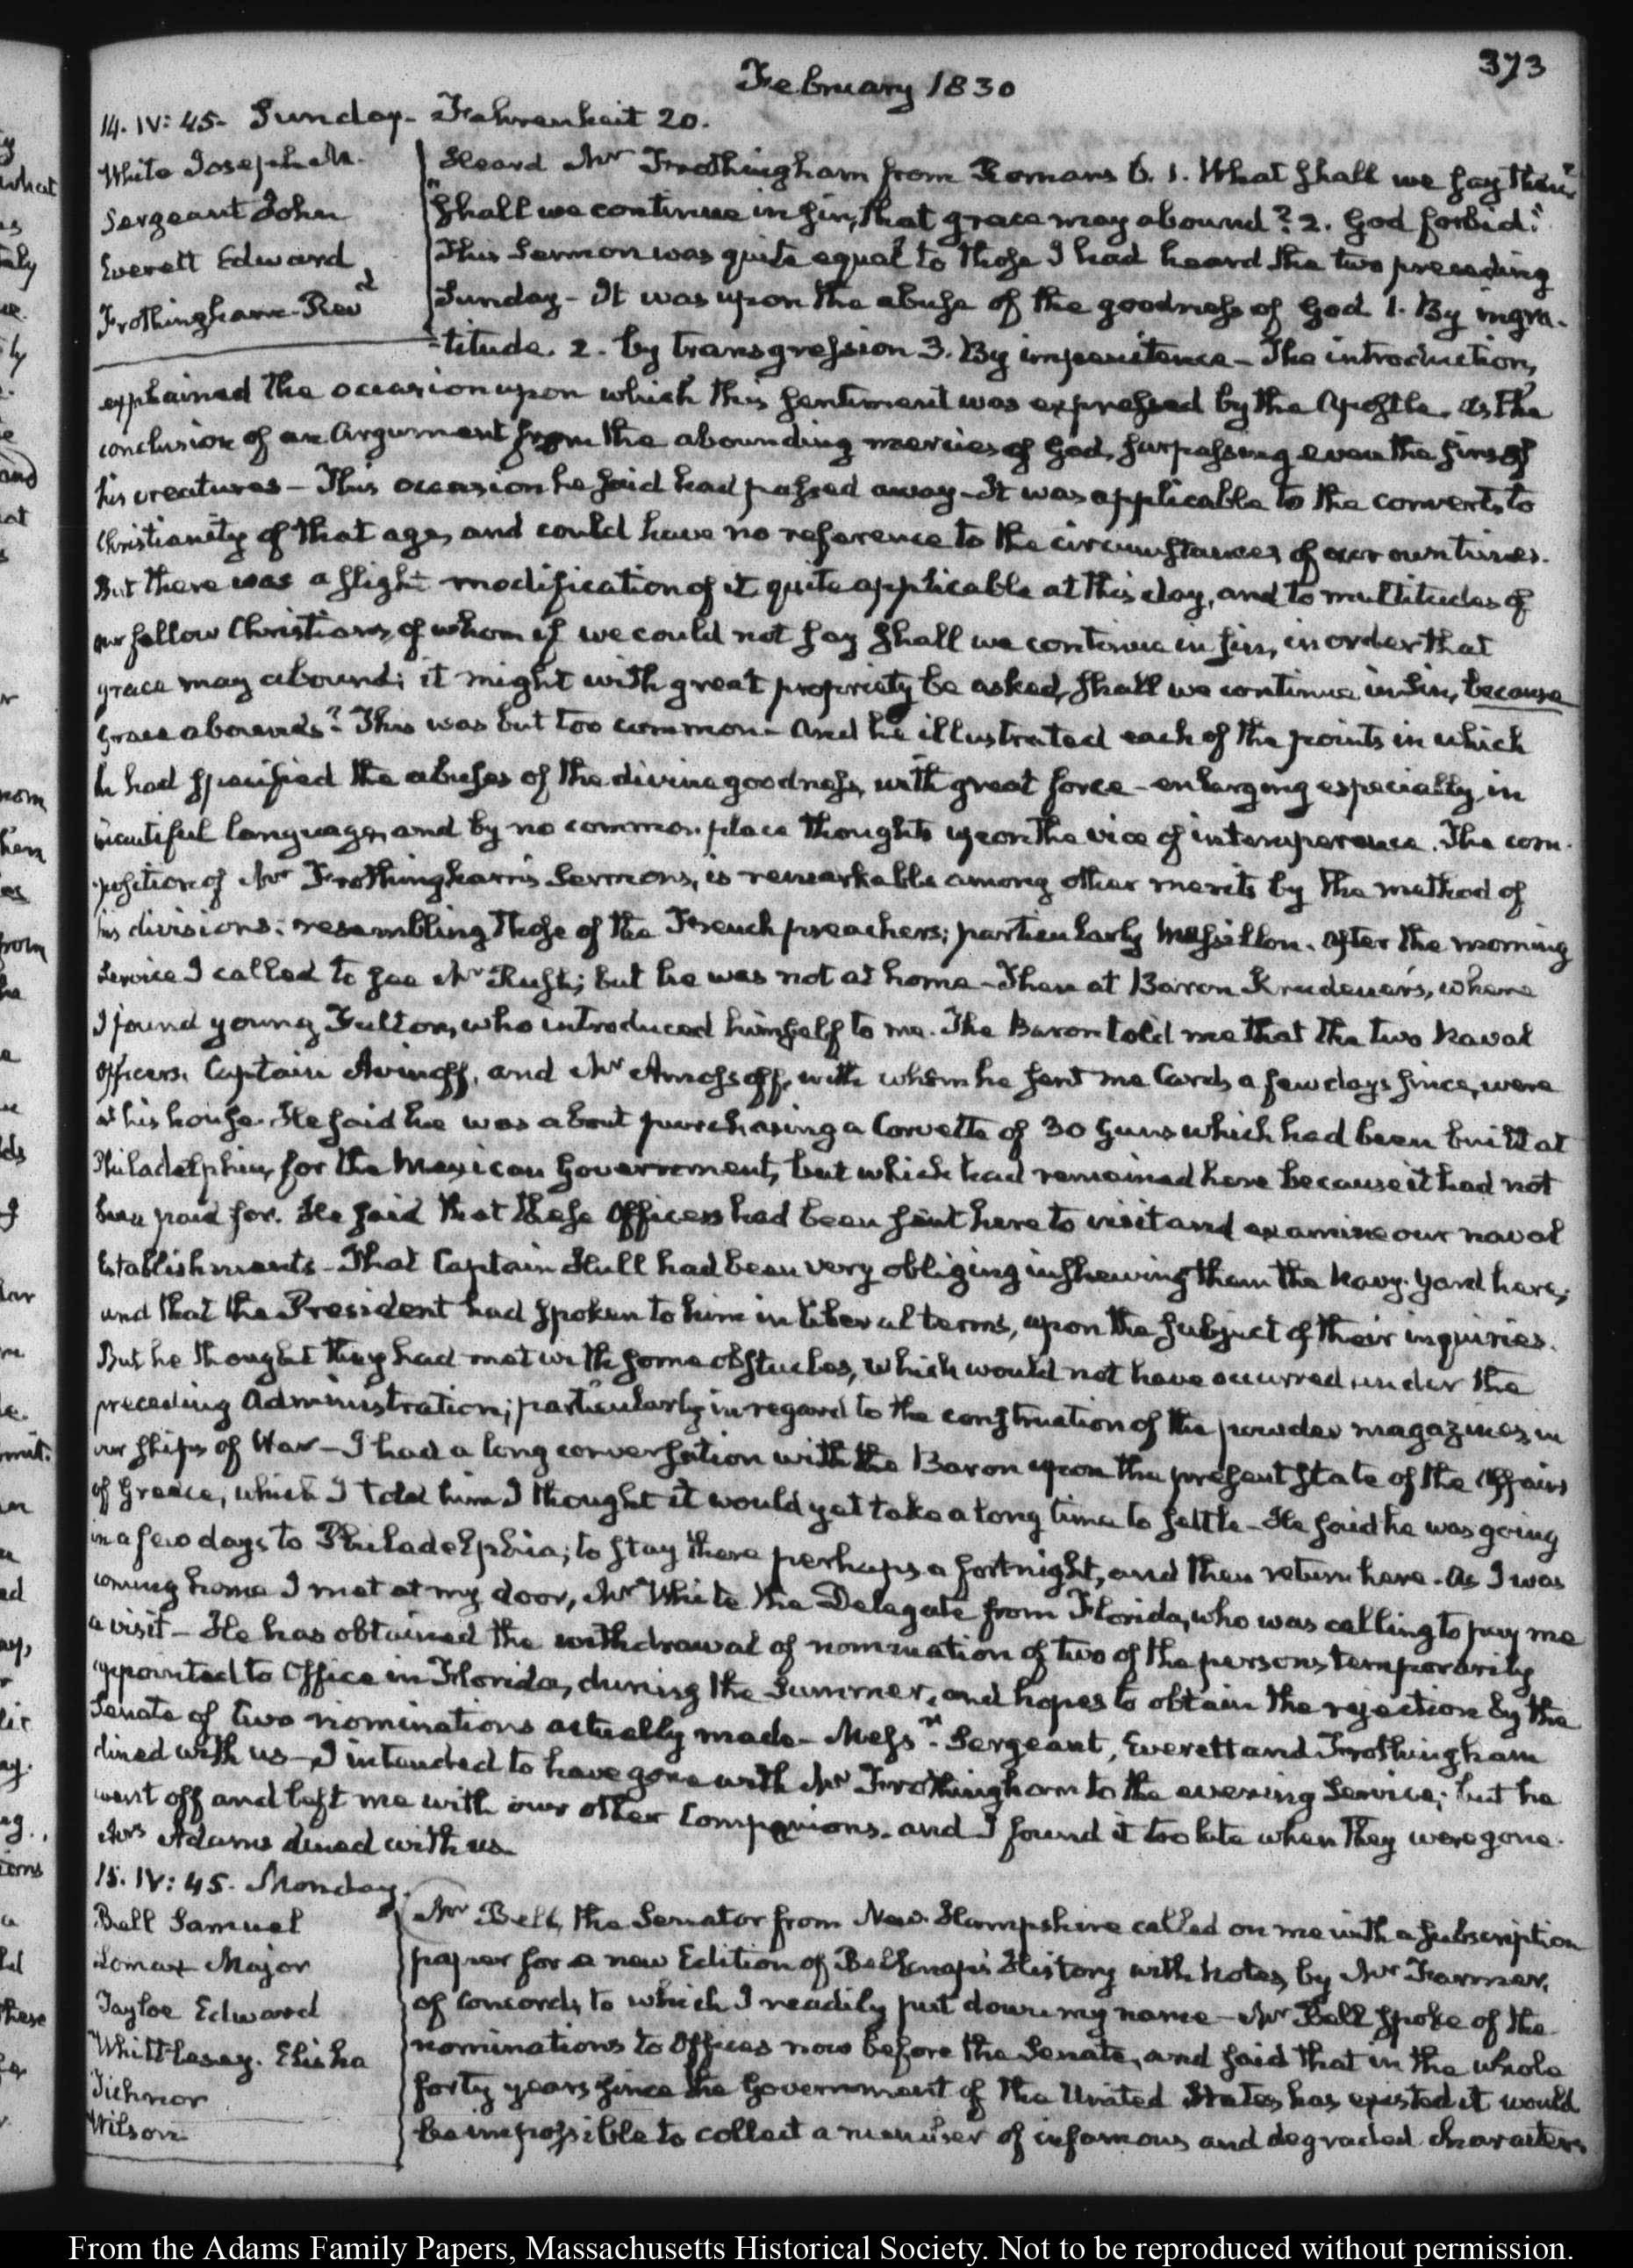 373
February 1830
14. IV: 45. Sunday. Fahrenheit 20.
White Joseph M.
Sergeant John
Everett Edward
Frothingham Revd
Heard Mr Frothingham from Romans 6. 1. What shall we say then?
"shall we continue in sin, that grace may abound? 2. God forbid."
This Sermon was quite equal to those I had heard the two preceding
Sunday - It was upon the abuse of the goodness of God 1. By ingra-
-titude. 2. by transgression 3. By impenitence - The introduction,
explained the occasion upon which this sentiment was expressed by the Apostle. as the
conclusion of an Argument from the abounding mercies of God, surpassing even the sins of
his creatures - This occasion he said had passed away - It was applicable to the converts to
Christianity of that age, and could have no reference to the circumstances of our own times.
But there was a slight modification of it quite applicable at this day, and to multitudes of
our fellow Christians, of whom if we could not say shall we continue in sin, in order that
grace may abound; it might with great propriety be asked, shall we continue in sin, because
grace abounds? This was but too common - And he illustrated each of the points in which
he had specified the abuses of the divine goodness, with great force - enlarging especially in
beautiful language, and by no common place thoughts upon the vice of intemperance. The com-
-position of Mr Frothingham's Sermons, is remarkable among other merits by the method of
his divisions: resembling those of the French preachers; particularly Massillon. After the morning
Service I called to see Mr Rush; but he was not at home - Then at Baron Krudener's, where
I found young Fulton, who introduced himself to me. The Baron told me that the two Naval
Officers. Captain Avinoff, and Mr Amossoff, with whom he sent me Cards a few days since, were
at his house. He said he was about purchasing a Corvette of 30 Guns which had been built at
Philadelphia, for the Mexican Government, but which had remained here because it had not
been paid for. He said that these Officers had been sent here to visit and examine our naval
Establishments - That Captain Hull had been very obliging in shewing them the Navy-Yard here,
and that the President had spoken to him in liberal terms, upon the subject of their inquiries.
But he thought they had met with some obstacles, which would not have occurred under the
preceding Administration; particularly in regard to the construction of the powder magazines in
our ships of War - I had a long conversation with the Baron upon the present state of the Affairs
of Greece, which I told him I thought it would yet take a long time to settle - He said he was going
in a few days to Philadelphia; to stay there perhaps a fortnight, and then return here. As I was
coming home I met at my door, Mr White the Delegate from Florida, who was calling to pay me
a visit - He has obtained the withdrawal of nomination of two of the persons temporarily
appointed to Office in Florida, during the Summer, and hopes to obtain the rejection by the
Senate of two nominations actually made - Messrs Sergeant, Everett and Frothingham
dined with us - I intended to have gone with Mr Frothingham to the evening Service; but he
went off and left me with our other Companions. and I found it too late when they were gone.
Mrs Adams dined with us.
15. IV: 45. Monday.
Bell Samuel
Lomax Major
Tayloe Edward
Whittlesey. Elisha
Tichnor
Wilson
Mr Bell, the Senator from New-Hampshire called on me with a subscription
paper for a new Edition of Belknap's History with Notes, by Mr Farmer,
of Concord, to which I readily put down my name - Mr Bell spoke of the
nominations to Offices now before the Senate, and said that in the whole
forty years since the Government of the United States has existed it would
be impossible to collect a number of infamous and degraded characters
From the Adams Family Papers, Massachusetts Historical Society. Not to be reproduced without permission.